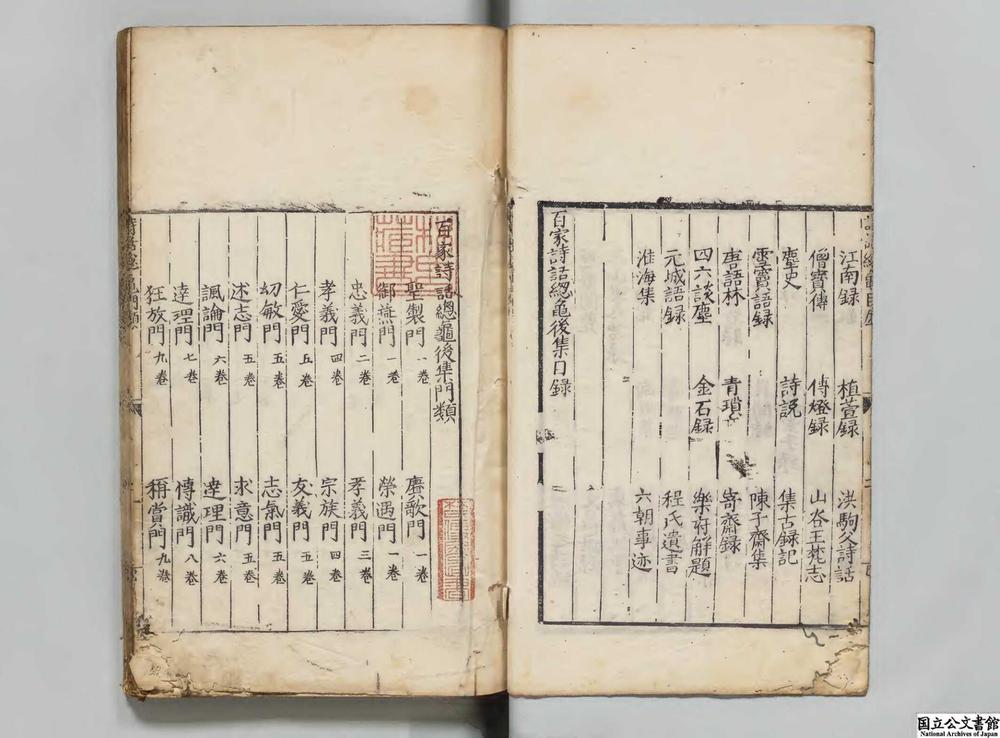 江南録 植萱録 洪駒父詩話
僧寶傳 傳燈録 山谷王梵志
塵史 詩説 集古録記
雪竇語録 陳子齋集
唐語林 青瑣 寄齋録
四六談塵 金石録 樂府解題
元城語録 程氏遺書
淮海集 六朝事迹
百家詩話總龜後集目録
百家詩話總龜後集門類
聖製門 一卷 賡歌門 一卷
御燕門 一卷 榮遇門 一卷
忠義門 二卷 孝義門 三卷
孝義門 四卷 宗族門 四卷
仁愛門 五卷 友義門 五卷
幼敏門 五卷 志氣門 五卷
述志門 五卷 求意門 五卷
諷諭門 六卷 達理門 六卷
達理門 七卷 傳識門 八卷
狂放門 九卷 稱賞門 九卷
国立公文書館
National Archives of Japan